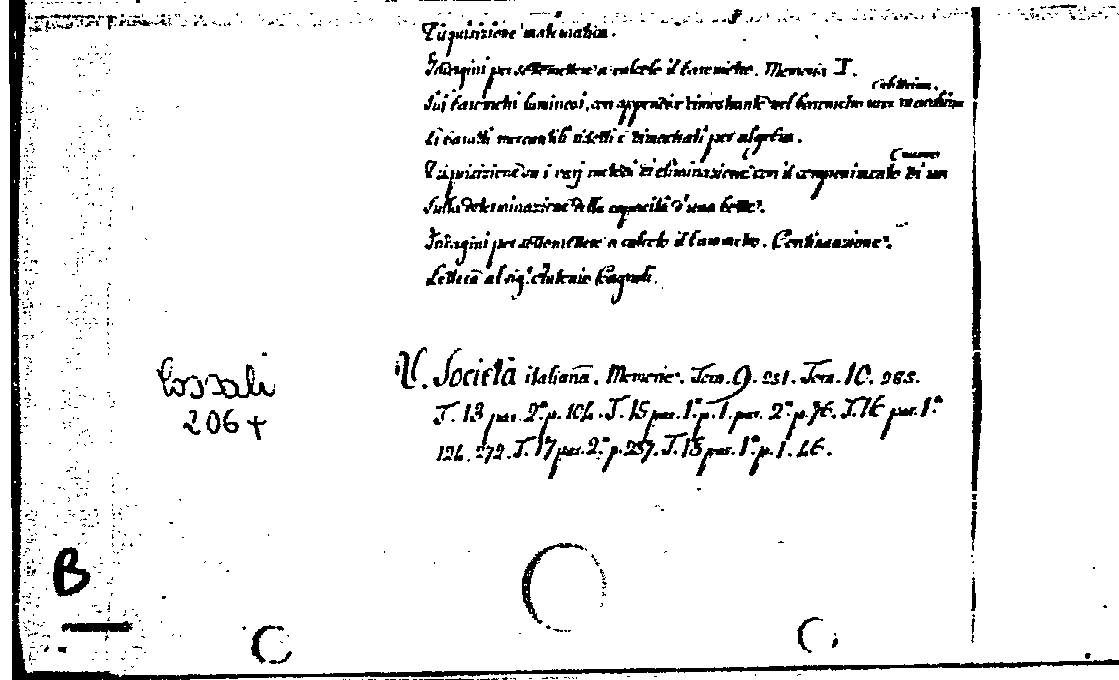 Disquisizione matematica.
Indagini per sottomettere a calcolo il barometro. Memoria I.
Sui barometri luminosi, con appendice rimostrante nel barometro una
Li baratti mercantili ridotti e dimostrati per algebra.
Disquisizione su i varj metodi di eliminazione con il componimento di un
Sulla determinazione della capacità d'una botte.
Indagini per sottomettere a calcolo il barometro. Continuazione.
Lettera al sig. Antonio Cagnoli.
Cossali
206+
V. Società italiana. Memorie. Tom. 9. 251. Tom. 10. 283.
T. 13 par. 2.ª p. 104. T. 15 par. 1.ª p. 1. par. 2.ª p. 76. T. 16 par. 1.ª
124. 272. T. 17 par. 2.ª p. 237. T. 18 par. 1.ª p. 1. 46.
B